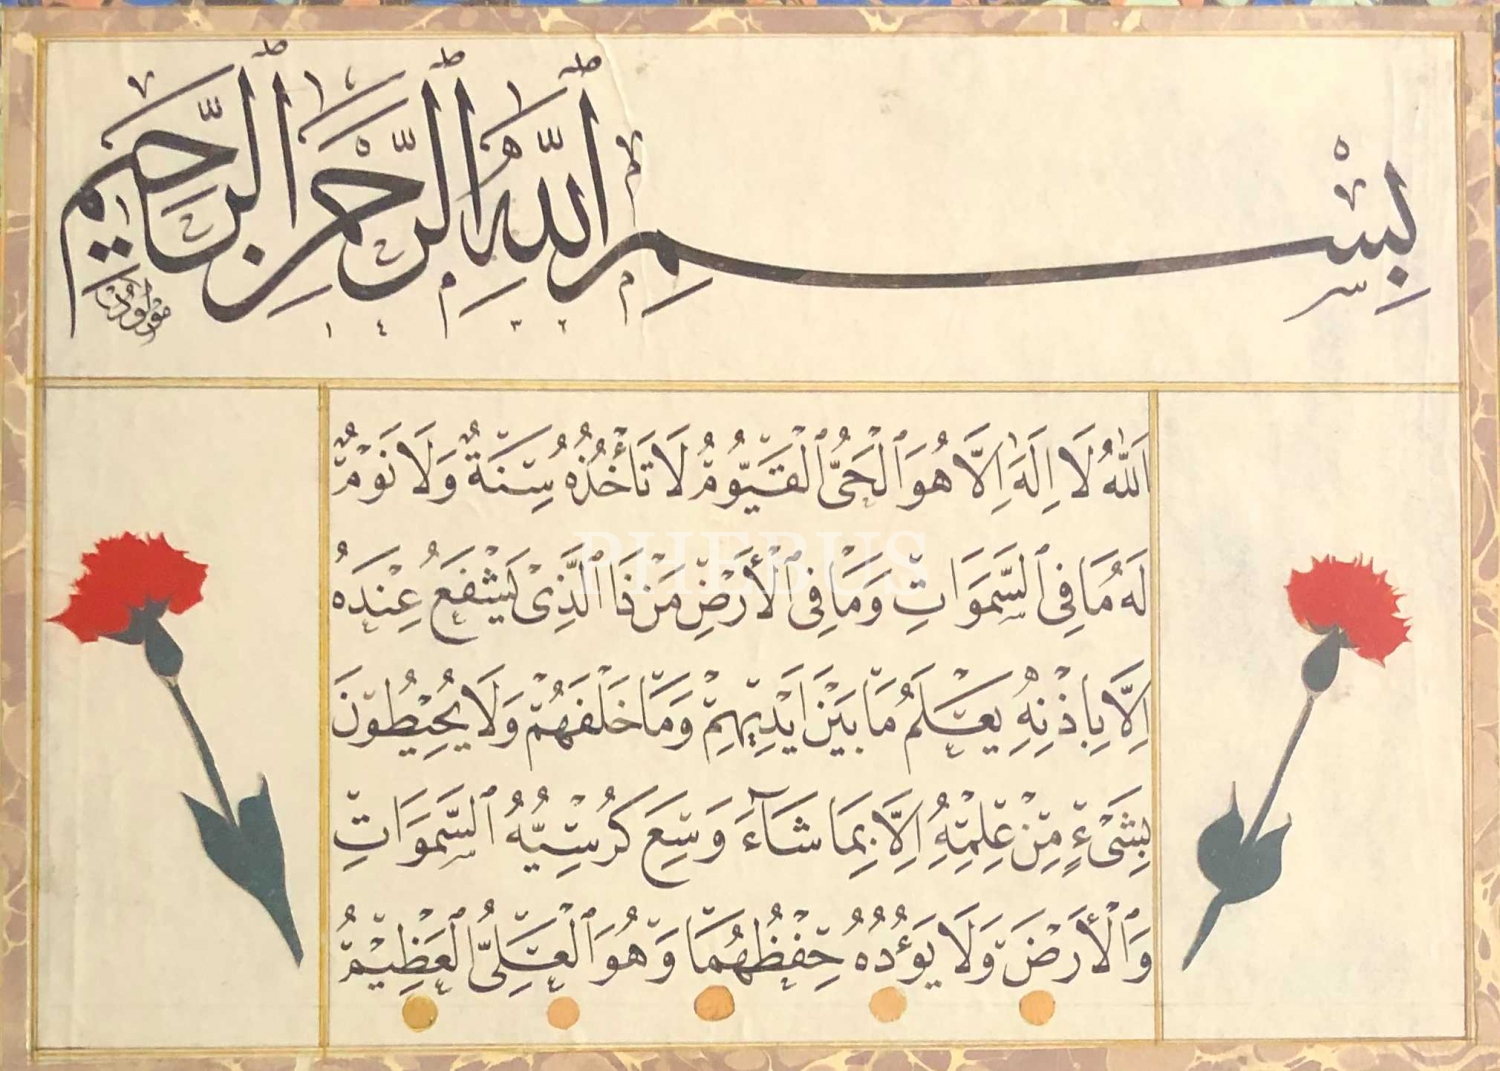 بِسْمِ اللّٰهِ الرَّحْمٰنِ الرَّحِيمِ
١٤٣٢
اَللّٰهُ لَا اِلٰهَ اِلَّا هُوَ الْحَىُّ الْقَيُّومُ لَا تَأْخُذُهُ سِنَةٌ وَلَا نَوْمٌ
لَهُ مَا فِى السَّمٰوَاتِ وَمَا فِى الْأَرْضِ مَنْ ذَا الَّذِى يَشْفَعُ عِنْدَهُ
اِلَّا بِاِذْنِهِ يَعْلَمُ مَا بَيْنَ اَيْدِيهِمْ وَمَا خَلْفَهُمْ وَلَا يُحِيطُونَ
بِشَىْءٍ مِنْ عِلْمِهِ اِلَّا بِمَا شَاءَ وَسِعَ كُرْسِيُّهُ السَّمٰوَاتِ
وَالْأَرْضَ وَلَا يَؤُدُهُ حِفْظُهُمَا وَهُوَ الْعَلِىُّ الْعَظِيمُ
PHEBUS